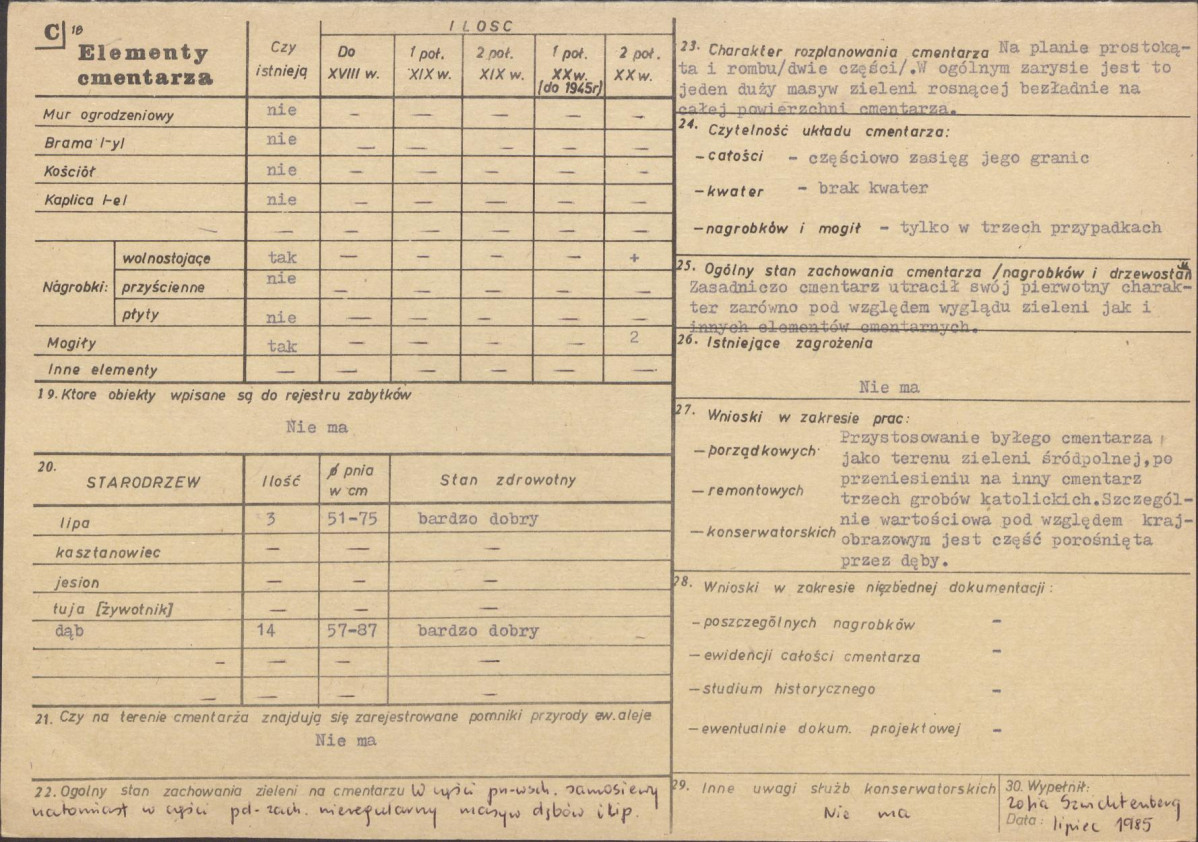 C 18
Elementy
cmentarza
Czy
istnieją
ILOSC
Do
XVIII w.
1 poł.
XIX w.
2 poł.
XIX w.
1 poł.
XX w.
[do 1945r]
2 poł.
XX w.
Mur ogrodzeniowy nie — — — — —
Brama /-y/ nie — — — — —
Kościół nie — — — — —
Kaplica /-e/ nie — — — — —
— — — — — — —
Nagrobki:
wolnostojące tak — — — — +
przyścienne nie — — — — —
płyty nie — — — — —
Mogiły tak — — — — 2
Inne elementy — — — — — —
19. Ktore obiekty wpisane są do rejestru zabytków
Nie ma
20.
STARODRZEW Ilość ø pnia
w cm Stan zdrowotny
lipa 3 51-75 bardzo dobry
kasztanowiec — — —
jesion — — —
tuja [żywotnik] — — —
dąb 14 57-87 bardzo dobry
— — — —
— — — —
21. Czy na terenie cmentarża znajdują się zarejestrowane pomniki przyrody ew. aleje
Nie ma
22. Ogolny stan zachowania zieleni na cmentarzu W części pn-wsch. samosiewy
natomiast w części pd-zach. nieregularny masyw dębów i lip.
23. Charakter rozplanowania cmentarza Na planie prostoką-
ta i rombu/dwie części/.W ogólnym zarysie jest to
jeden duży masyw zieleni rosnącej bezładnie na
całej powierzchni cmentarza.
24. Czytelność układu cmentarza:
— całości - częściowo zasięg jego granic
— kwater - brak kwater
— nagrobków i mogił - tylko w trzech przypadkach
25. Ogólny stan zachowania cmentarza /nagrobków i drzewostan
Zasadniczo cmentarz utracił swój pierwotny charak-
ter zarówno pod względem wyglądu zieleni jak i
innych elementów cmentarnych.
26. Istniejące zagrożenia
Nie ma
27. Wnioski w zakresie prac:
— porządkowych
— remontowych
— konserwatorskich
Przystosowanie byłego cmentarza
jako terenu zieleni śródpolnej,po
przeniesieniu na inny cmentarz
trzech grobów katolickich.Szczegól-
nie wartościowa pod względem kraj-
obrazowym jest część porośnięta
przez dęby.
28. Wnioski w zakresie niezbednej dokumentacji:
— poszczególnych nagrobków -
— ewidencji całości cmentarza -
— studium historycznego -
— ewentualnie dokum. projektowej -
29. Inne uwagi służb konserwatorskich
Nie ma
30. Wypełnił:
Zofia Szwichtenberg
Data: lipiec 1985